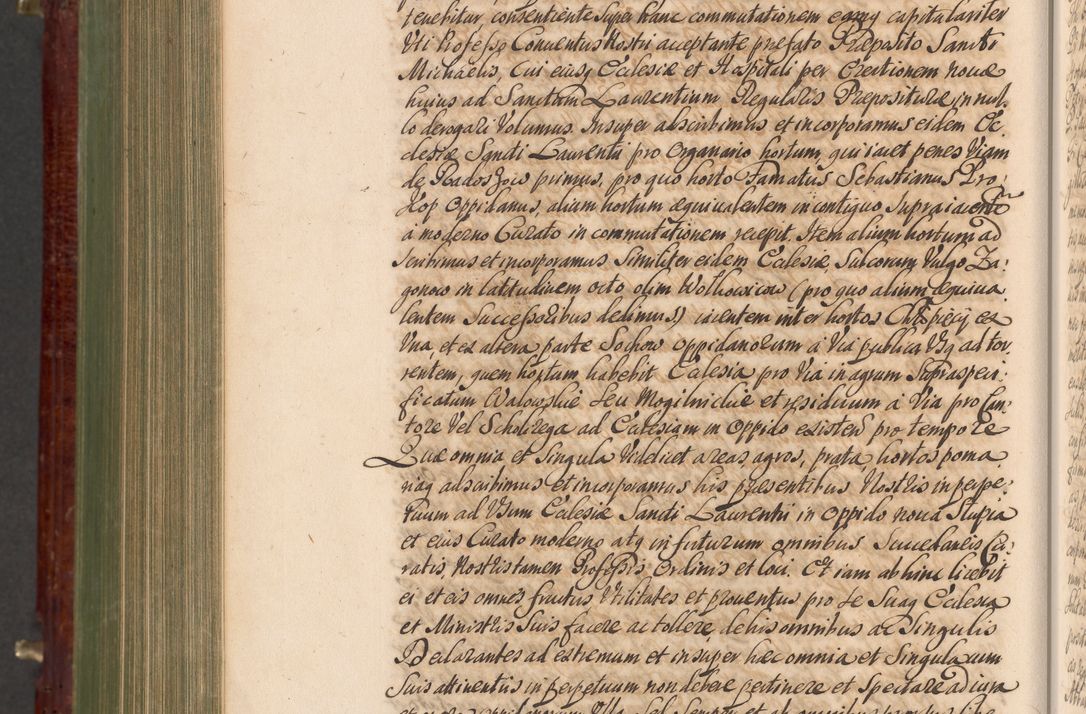 tenebitur, consentiente super hanc commutationem eamq capitulariter
Uti Professo Conventus Nostri acceptante prefato Præposito Sancti
Michaelis, Cui eiusq Ecclesiæ et Hospitali per Erectionem novæ
huius ad Sanctum Laurentium Regularis Præposituræ, in nul-
lo derogari Volumus. Insuper adscribimus et incorporamus eidem Ec-
clesiæ Sancti Laurentii pro Organario hortum, qui iacet penes Viam
de Radoszow primus, pro quo horto Famatus Sebastianus Pro-
kop Oppidanus, alium hortum æquivalentem in contiguo supraiacente
a moderno Curato in commutationem recepit. Item alium hortum ad
scribimus et incorporamus Similiter eidem Ecclesiæ, Sulcorum Vulgo Za-
gonow in latitudinem octo olim Wolkowicow (pro quo alium æquiva
lentem Successoribus dedimus) iacentem inter hortos Chlspiecij ex
Una, et ex altera parte Sochow oppidanorum a Via publica Usq ad tor-
rentem, quem hortum habebit Ecclesia pro Via in agrum Supraspeci-
ficatum Walowskie seu Mogilnickie et residuum a Via pro Can-
tore Vel Scholirega ad Ecclesiam in Oppido existen pro tempore
Quæ omnia et Singula Videlicet areas agros, prata, hortos poma
riaq adscribimus et incorporamus his præsentibus Nostris in perpe-
tuum ad Usum Ecclesiæ Sancti Laurentii in Oppido nova Slupia
et eius Curato moderno atq in futurum omnibus Succedaneis Cu-
ratis, Nostris tamen Professis Ordinis et loci. Et iam ab hinc licebit
ei et eis omnes fructus Utilitates et proventus pro se Suaq Ecclesia
et Ministris Suis facere ac tollere, de his omnibus ac Singulis
Declarantes ad extremum et insuper hæc omnia et Singula cum
Suis attinentiis in perpetuum non debere pertinere et Spectare ad iura